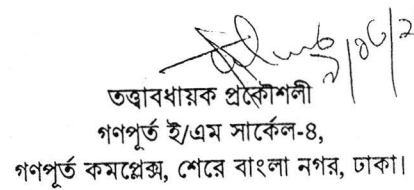 তত্ত্বাবধায়ক প্রকৌশলী
গণপূর্ত ই/এম সার্কেল-৪,
গণপূর্ত কমপ্লেক্স, শেরে বাংলা নগর, ঢাকা।